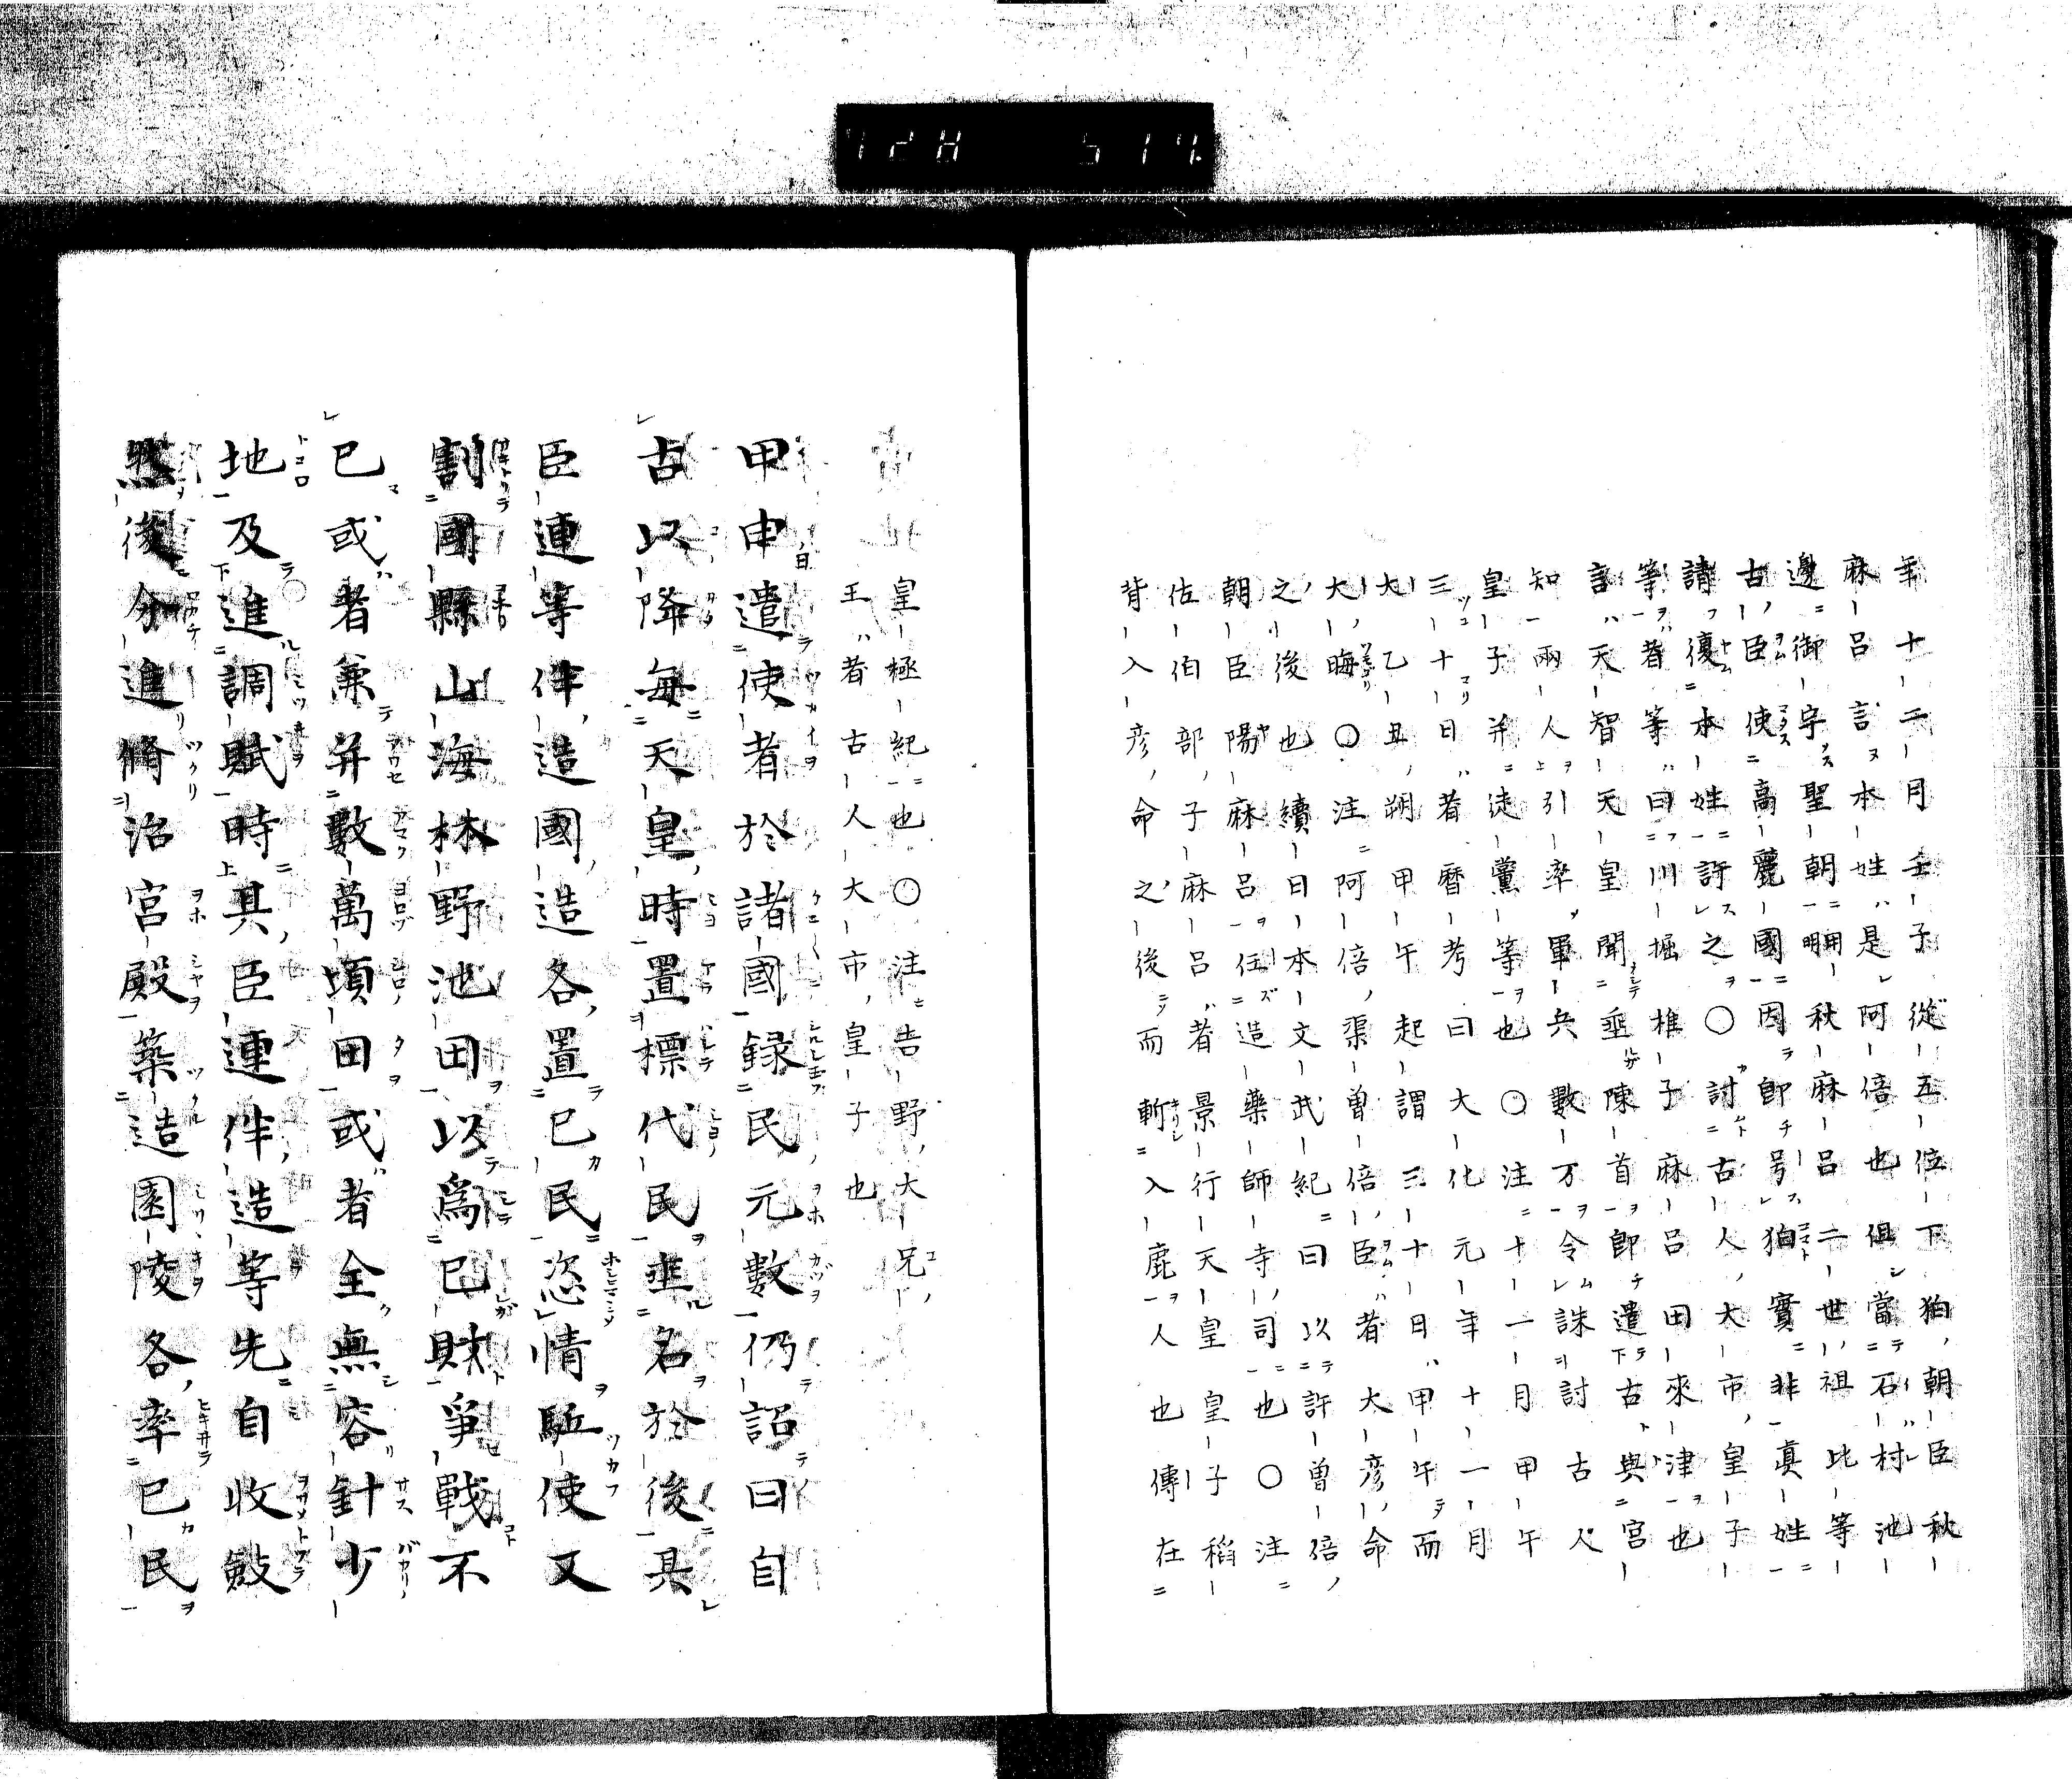 年十二月壬子從五位下狛朝臣秋
麻呂言本姓是阿倍也俱當石村池
邊御宇聖朝秋麻呂二世祖比等
古臣使高麗國因即号狛實非真姓
請復本姓許之○討古人大市皇子
等者等曰川掘椎子麻呂田來津也
言天智天皇聞垂陳首即遣古與宮
知兩人引率軍兵數万令誅討古人
皇子并徒黨等也○注十一月甲午
三十日者曆考曰大化元年十一月
大乙丑朔甲午起謂三十日甲午而
大晦○注阿倍渠曽倍臣者大彦命
之後也續日本文武紀曰以許曽倍
朝臣陽麻呂任造藥師寺司也○注
佐伯部子麻呂者景行天皇皇子稻
背入彦命之後而斬入鹿人也傳在
皇極紀也○注吉野大兄
王者古人大市皇子也
甲申遣使者於諸國録民元數仍詔曰自
古以降每天皇時置標代民垂名於後其
臣連等伴造國造各置已民恣情駈使又
割國縣山海林野池田以爲已財爭戰不
已或者兼并數萬頃田或者全無容針少
地及進調賦時其臣連伴造等先自收斂
然後分進脩治宮殿築造園陵各率已民